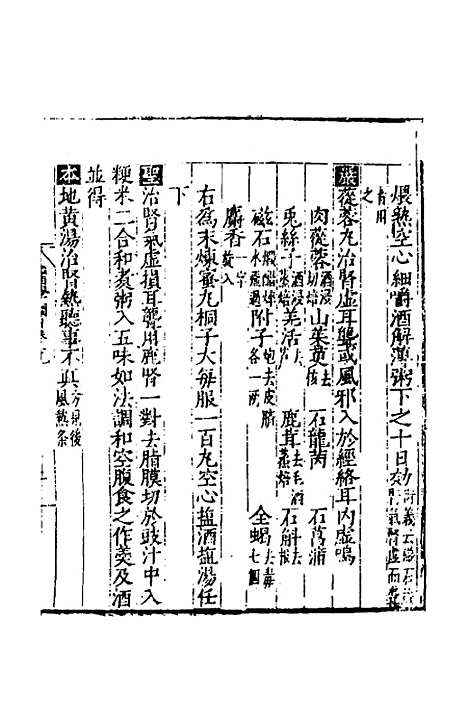 煨熟空心細嚼酒解薄粥下之十日効
之
嚴蓯蓉丸治腎虛耳聾或風邪入於經絡耳內虛鳴
肉蓯蓉酒浸切焙 山茱萸去核 石龍芮 石菖蒲
兎絲子酒浸蒸焙 羌活去 鹿茸去毛酒蒸焙 石斛去根
磁石煅醋淬水飛過 附子炮去皮臍各一兩 全蝎去毒七個
麝香一字旋入
右爲末煉蜜丸桐子大每服一百丸空心塩酒塩湯任
下
聖治腎氣虛損耳聾用鹿腎一對去脂膜切於豉汁中入
粳米二合和煮粥入五味如法調和空腹食之作羮及酒
並得
本地黃湯治腎熱聽事不真方見後風熱条